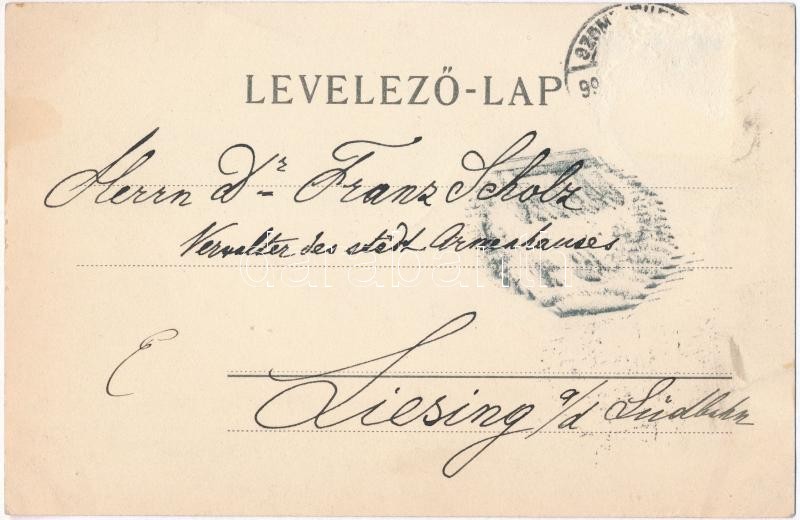 LEVELEZŐ-LAP
Herrn Dr Franz Scholz
Verwalter des städt Armenhauses
Liesing a/d Südbahn